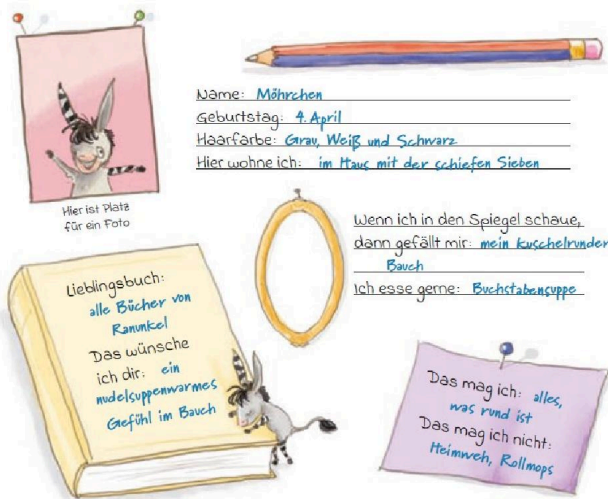 Name: Möhrchen
Geburtstag: 4. April
Haarfarbe: Grau, Weiß und Schwarz
Hier wohne ich: im Haus mit der schiefen Sieben
Hier ist Platz
für ein Foto
Wenn ich in den Spiegel schaue,
dann gefällt mir: mein kuschelrunder
Bauch
Ich esse gerne: Buchstabensuppe
Lieblingsbuch:
alle Bücher von
Ranunkel
Das wünsche
ich dir: ein
nudelsuppenwarmes
Gefühl im Bauch
Das mag ich: alles,
was rund ist
Das mag ich nicht:
Heimweh, Rollmops